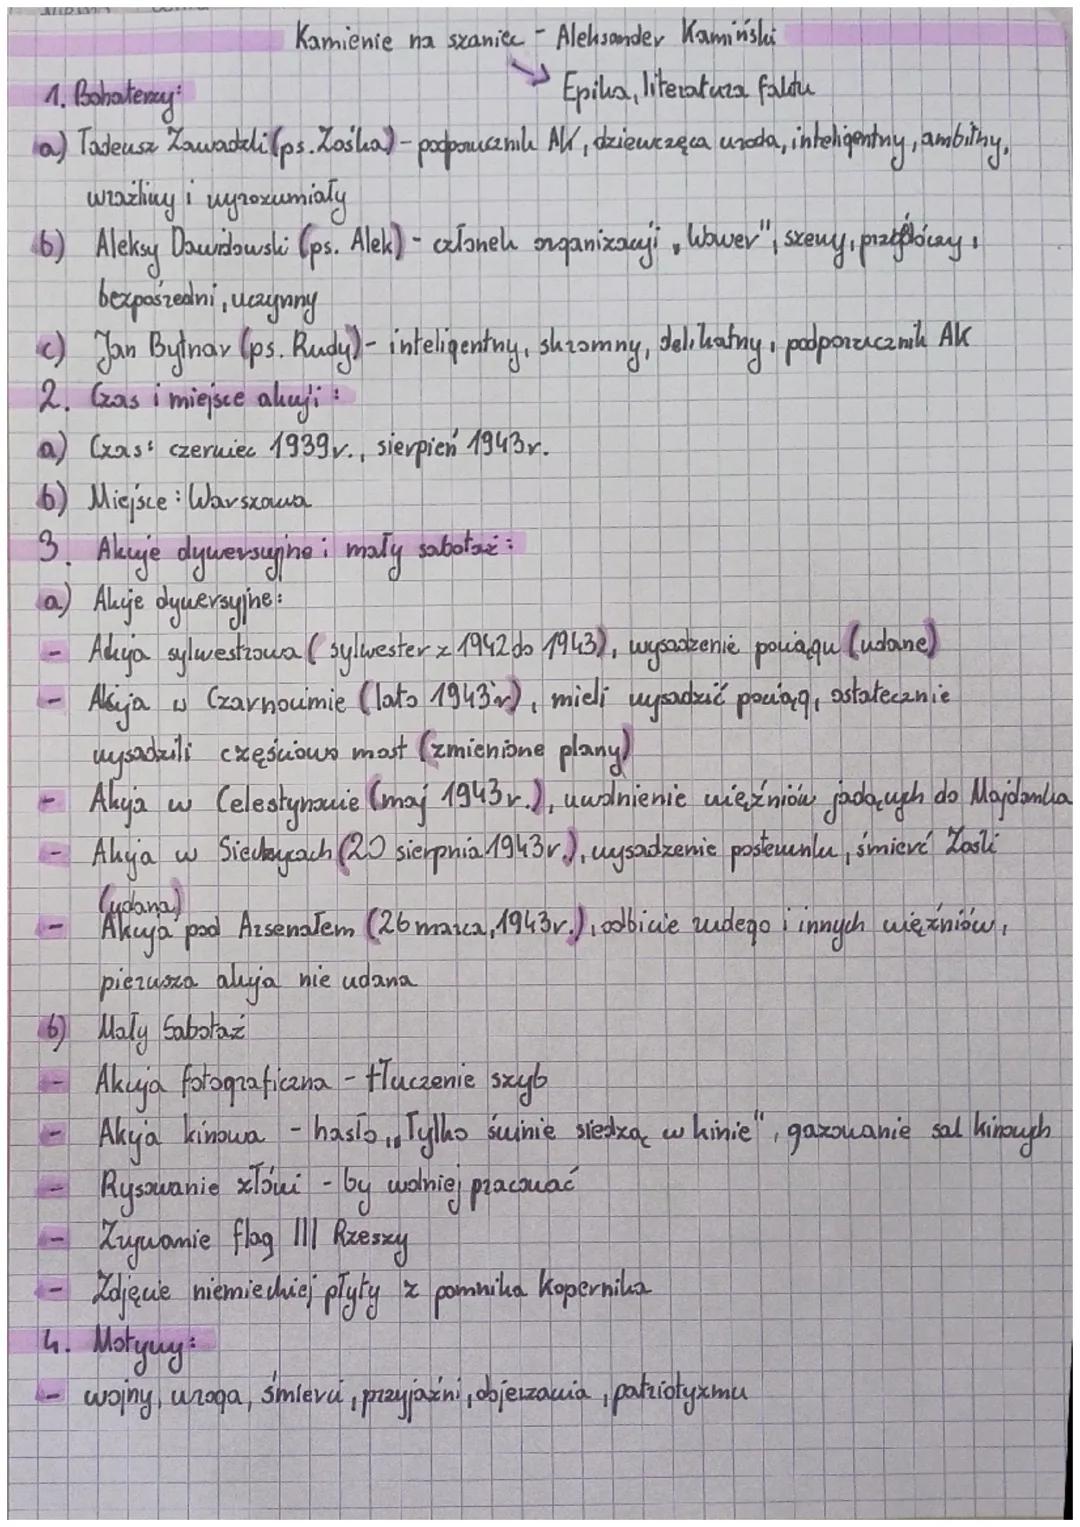 Kamienie na szaniec - Aleksander Kamiński
→ Epika, literatura faktu
1. Bohaterzy:
a) Tadeusz Zawadzki (ps. Zośka) - podporucznik AK, dziewczęca uroda, inteligentny, ambitny,
wrażliwy i wyrozumiały
b) Aleksy Dawidowski (ps. Alek) - członek organizacji „Wawer", szczery,
bezpośredni, uczynny
c) Jan Bytnar (ps. Rudy) - inteligentny, skromny, delikatny, podporucznik AK
2. Czas i miejsce akcji:
a) Czas: czerwiec 1939r., sierpień 1943r.
b) Miejsce: Warszawa
3. Akcje dywersyjne i mały sabotaż:
a) Akcje dywersyjne:
- Akcja sylwestrowa (sylwester z 1942 do 1943), wysadzenie pociągu (udane)
- Akcja w Czarnocinie (lato 1943r), mieli wysadzić pociąg, ostatecznie
wysadzili częściowo most (zmienione plany)
- Akcja w Celestynowie (maj 1943r.), uwolnienie więźniów jadących do Majdanka
- Akcja w Sieczychach (20 sierpnia 1943r.), wysadzenie posterunku, śmierć Zośki
(udana)
- Akcja pod Arsenałem (26 marca, 1943r.), odbicie rudego i innych więźniów,
pierwsza akcja nie udana
b) Mały Sabotaż
- Akcja fotograficzna - tłuczenie szyb
- Akcja kinowa - hasło „Tylko świnie siedzą w kinie", gazowanie sal kinowych
- Rysowanie żółwi - by wolniej pracować
- Zrywanie flag III Rzeszy
- Zdjęcie niemieckiej płyty z pomnika Kopernika
4. Motywy:
- wojny, wroga, śmierci, przyjaźni, objerzania, patriotyzmu